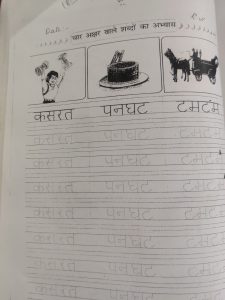 Date -
चार अक्षर वाले शब्दों का अभ्यास
कसरत पनघट टमटम
कसरत पनघट टमटम
कसरत पनघट टमटम
कसरत पनघट टमटम
कसरत पनघट टमटम
कसरत पनघट टमटम
कसरत पनघट टमटम
कसरत पनघट टमटम